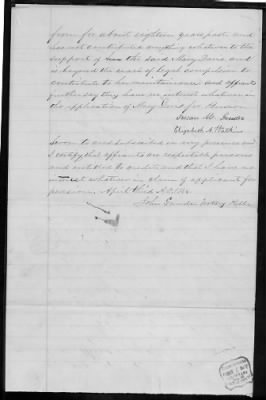 from for about eighteen years past and
has not contributed anything whatever to the
support of the said Mary Davis and
is beyond the reach of legal compulsion to
contribute to her maintenance and affiants
further say they have no interest whatever in
the application of Mary Davis for Pension
Susan M.
Elizabeth A Watkins
Sworn to and subscribed in my presence and
I certify that affiants are respectable persons
and entitled to credit and that I have no
interest whatever in claim of applicant for
pension. April third A.D.
John Saunders Notary Public